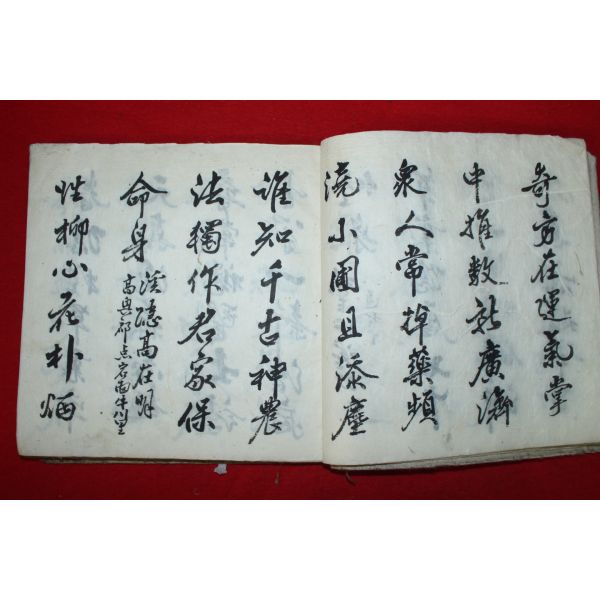 奇方在運氣掌
中推數新廣濟
衆人常掉藥頻
澆小圃且添塵
誰知千古神農
法獨作君家保
命身
溪隱高在明
高興郡占岩面牛川里
性柳心花朴烟